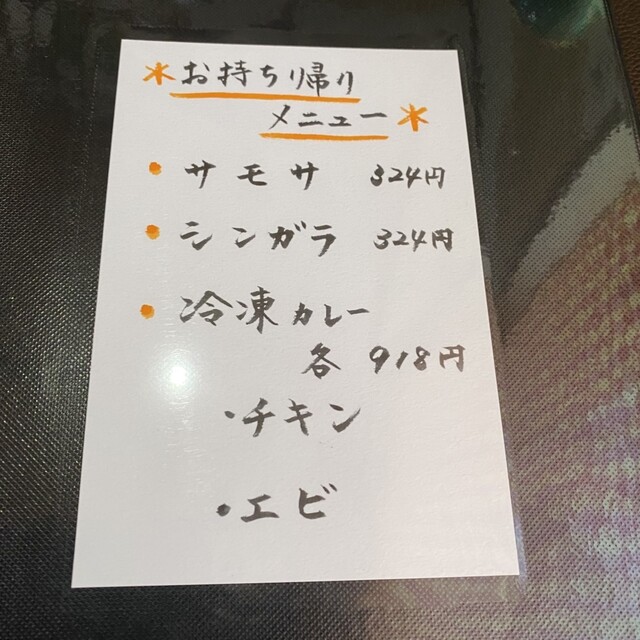 *お持ち帰り
メニュー*
• サモサ 324円
• シンガラ 324円
• 冷凍カレー
各 918円
・チキン
・エビ